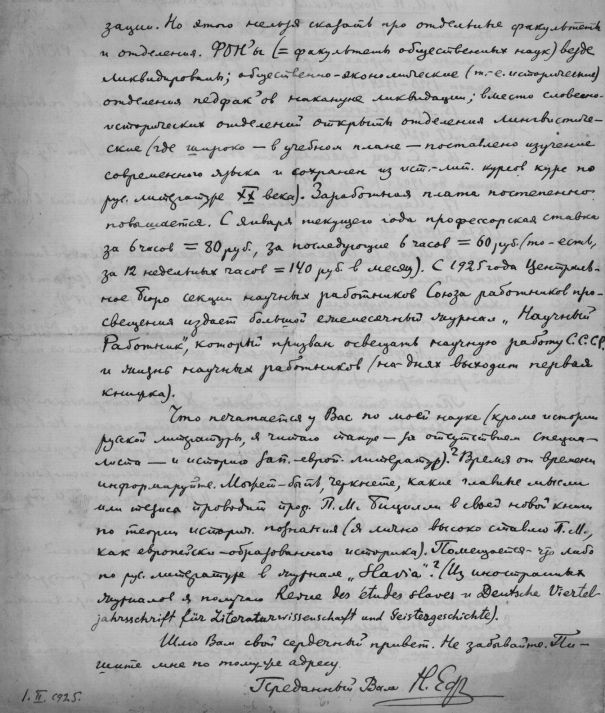 зации. Но этого нельзя сказать про отдельные факультеты
и отделения. ФОН'ы (= факультеты общественных наук) везде
ликвидированы; общественно-экономические (т.-е. исторические)
отделения педфак'ов накануне ликвидации; вместо словесно-
исторических отделений открыты отделения лингвистиче-
ские (где широко — в учебном плане — поставлено изучение
современного языка и сохранен из ист.-лит. курсов курс по
рус. литературе XX века). Заработная плата постепенно
повышается. С января текущего года профессорская ставка
за 6 часов = 80 руб., за последующие 6 часов = 60 руб. (то-есть,
за 12 недельных часов = 140 руб. в месяц). С 1925 года Централь-
ное бюро секции научных работников Союза работников про-
свещения издает большой ежемесячный журнал „Научный
Работник", который призван освещать научную работу С.С.С.Р.
и жизнь научных работников (на-днях выходит первая
книжка).
Что печатается у Вас по моей науке (кроме истории
русской литературы, я читаю также — за отсутствием специа-
листа — и историю зап.-европ. литератур)? Время от времени
информируйте. Может-быть, черкнете, какие главные мысли
или тезисы проводит проф. П. М. Бицилли в своей новой книге
по теории историч. познания (я лично высоко ставлю П. М.,
как европейски-образованного историка). Помещается-ли что либо
по рус. литературе в журнале „Slavia"? (Из иностранных
журналов я получаю Revue des études slaves и Deutsche Viertel-
jahrsschrift für Literaturwissenschaft und Geistesgeschichte).
Шлю Вам свой сердечный привет. Не забывайте. Пи-
шите мне по тому же адресу.
Преданный Вам
1. II. 1925.